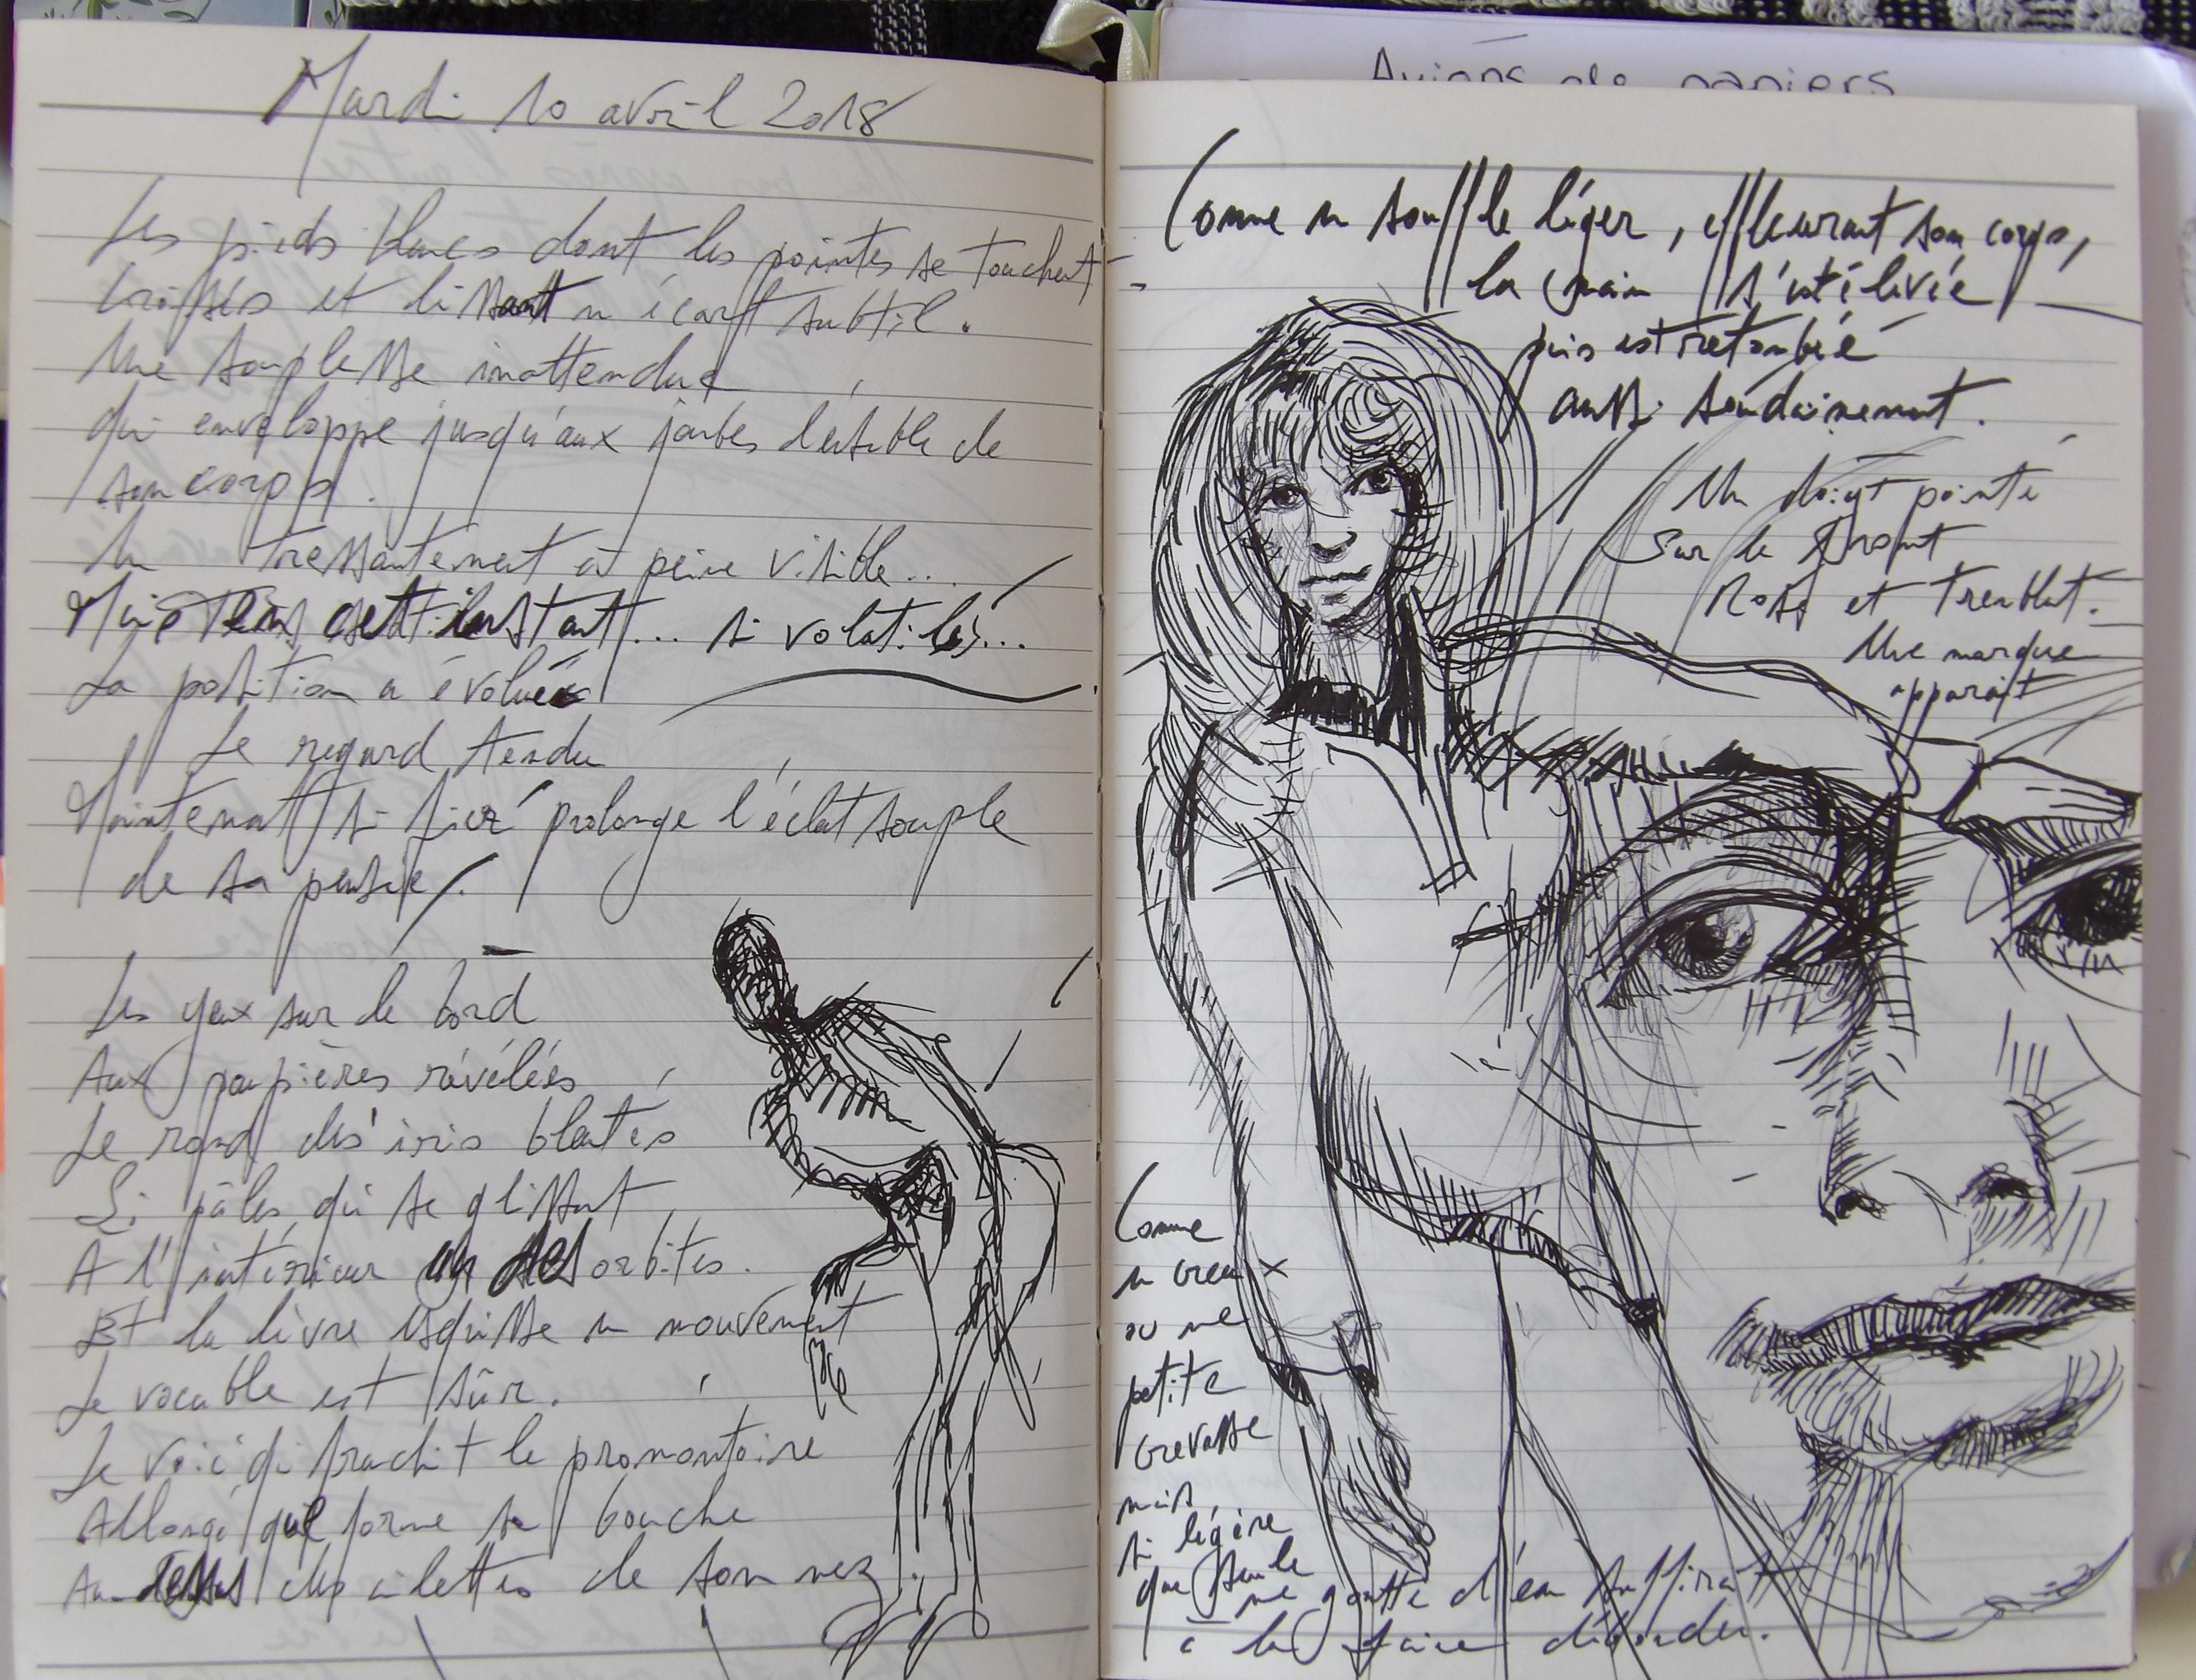 Mardi 10 avril 2018
Les pieds blancs dont les pointes se touchent
croisés et lissant un écart subtil.
Une souplesse inattendue
qui enveloppe jusqu'aux jambes l'ensemble de
son corps.
Un tressautement à peine visible...
cet instant... si volatile...
La position a évolué
Le regard tendu
Maintenant si fixe prolonge l'éclat souple
de sa pensée.
Les yeux sur le bord
Aux paupières révélées
Le rond des iris bleutés
Si pâles qui se glissent
A l'intérieur des orbites.
Et la lèvre esquisse un mouvement
Le vocable est sûr.
Le voici qui franchit le promontoire
Allongé que forme sa bouche
Au dessus des ailettes de son nez.
Avions de papiers
Comme un souffle léger, effleurant son corps,
la main s'est élevée
puis est retombée
aussi soudainement.
Un doigt pointé
Sur le front
Rose et tremblant.
Une marque
apparait
Comme
un creux
ou une
petite
crevasse
mais
si légère
que seule
une goutte d'eau suffirait
à la faire déborder.